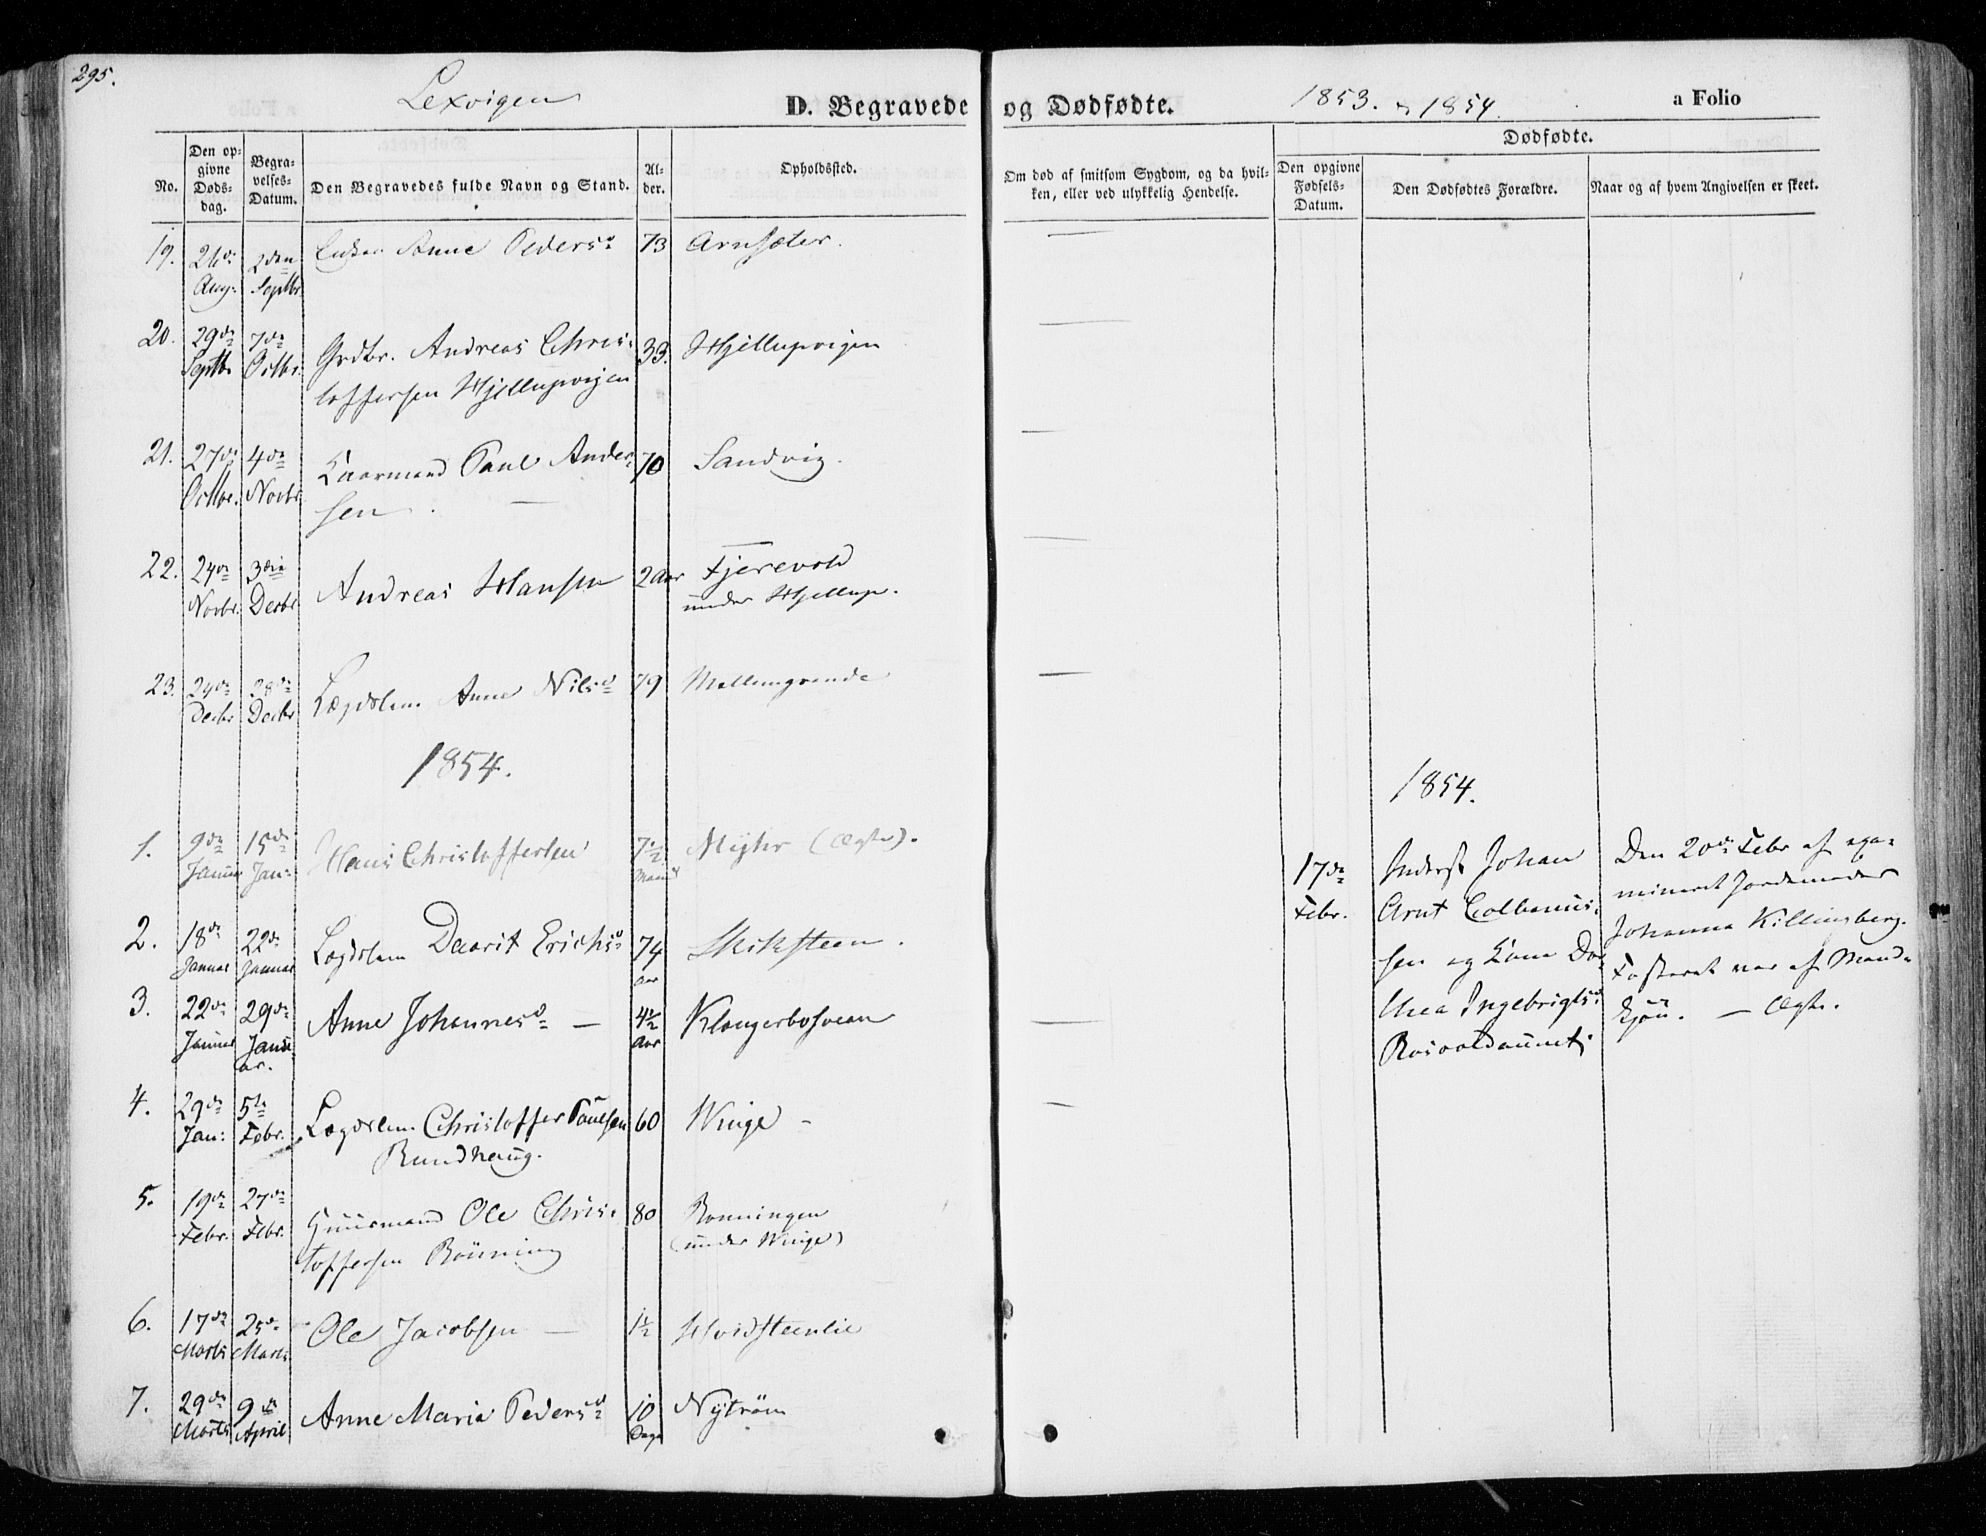 295.
Lexvigen
D. Begravede og Dødfødte.
1853. & 1854.
a Folio
No.
Den opgivne Dødsdag.
Begravelses-Datum.
Den Begravedes fulde Navn og Stand.
Alder.
Opholdssted.
Om død af smitsom Sygdom, og da hvilken, eller ved ulykkelig Hendelse.
Dødfødte.
Den opgivne Fødsels-Datum.
Den Dødfødtes Forældre.
Naar og af hvem Angivelsen er skeet.
19. 26de Aug: 2den Septbr Enken Anne Pedersd 73 Arnsæter.
20. 29de Septbr 7de Octbr. Grdbr. Andreas Chris-
toffersen Hjellupvigen 33. Hjellupvigen
21. 27de Octbr. 4de Novbr Kaarmand Paul Ander-
sen. 70 Sandvig.
22. 24de Novbr. 3die Decbr Andreas Hansen 2 Aar Fjerevold
under Hjellup.
23. 24de Decbr 28de Decbr Lægdslem Anne Nilsd 79 Mellemgrande
1854.
1. 9de Januar 15de Jan: Hans Christoffersen 7½ Maaned Myhr (Ægte).
2. 18de Januar 22de Januar Lægdslem Daarit Erichsd 74 Aar Skiksteen.
3. 22de Januar 29de Janu-
ar. Anne Johannesd — 4½ Aar Klangerbosvean
4. 29de Jan: 5te Febr. Lægdslem. Christoffer Paulsen
Rundhaug. 60 Winge -
5. 19de Febr. 27de Febr. Huusmand Ole Chris-
toffersen Rönning 80 Ronningen
(under Winge)
6. 17de Marts 25de Marts Ole Jacobsen — 1½ Hvidsteenlie
7. 29de Marts 9de April Anne Maria Pedersd 10 Dage Nytröen
1854.
17de Febr.
Inderst Johan
Arnt Colbenus-
sen og Kone Do-
thea Ingebrigtsd
Rosvoldaunet.
Den 20de Febr af exa-
mineret Jordemoder
Johanna Killingberg.
Fosteret var af Mand-
kjön. — Ægte.